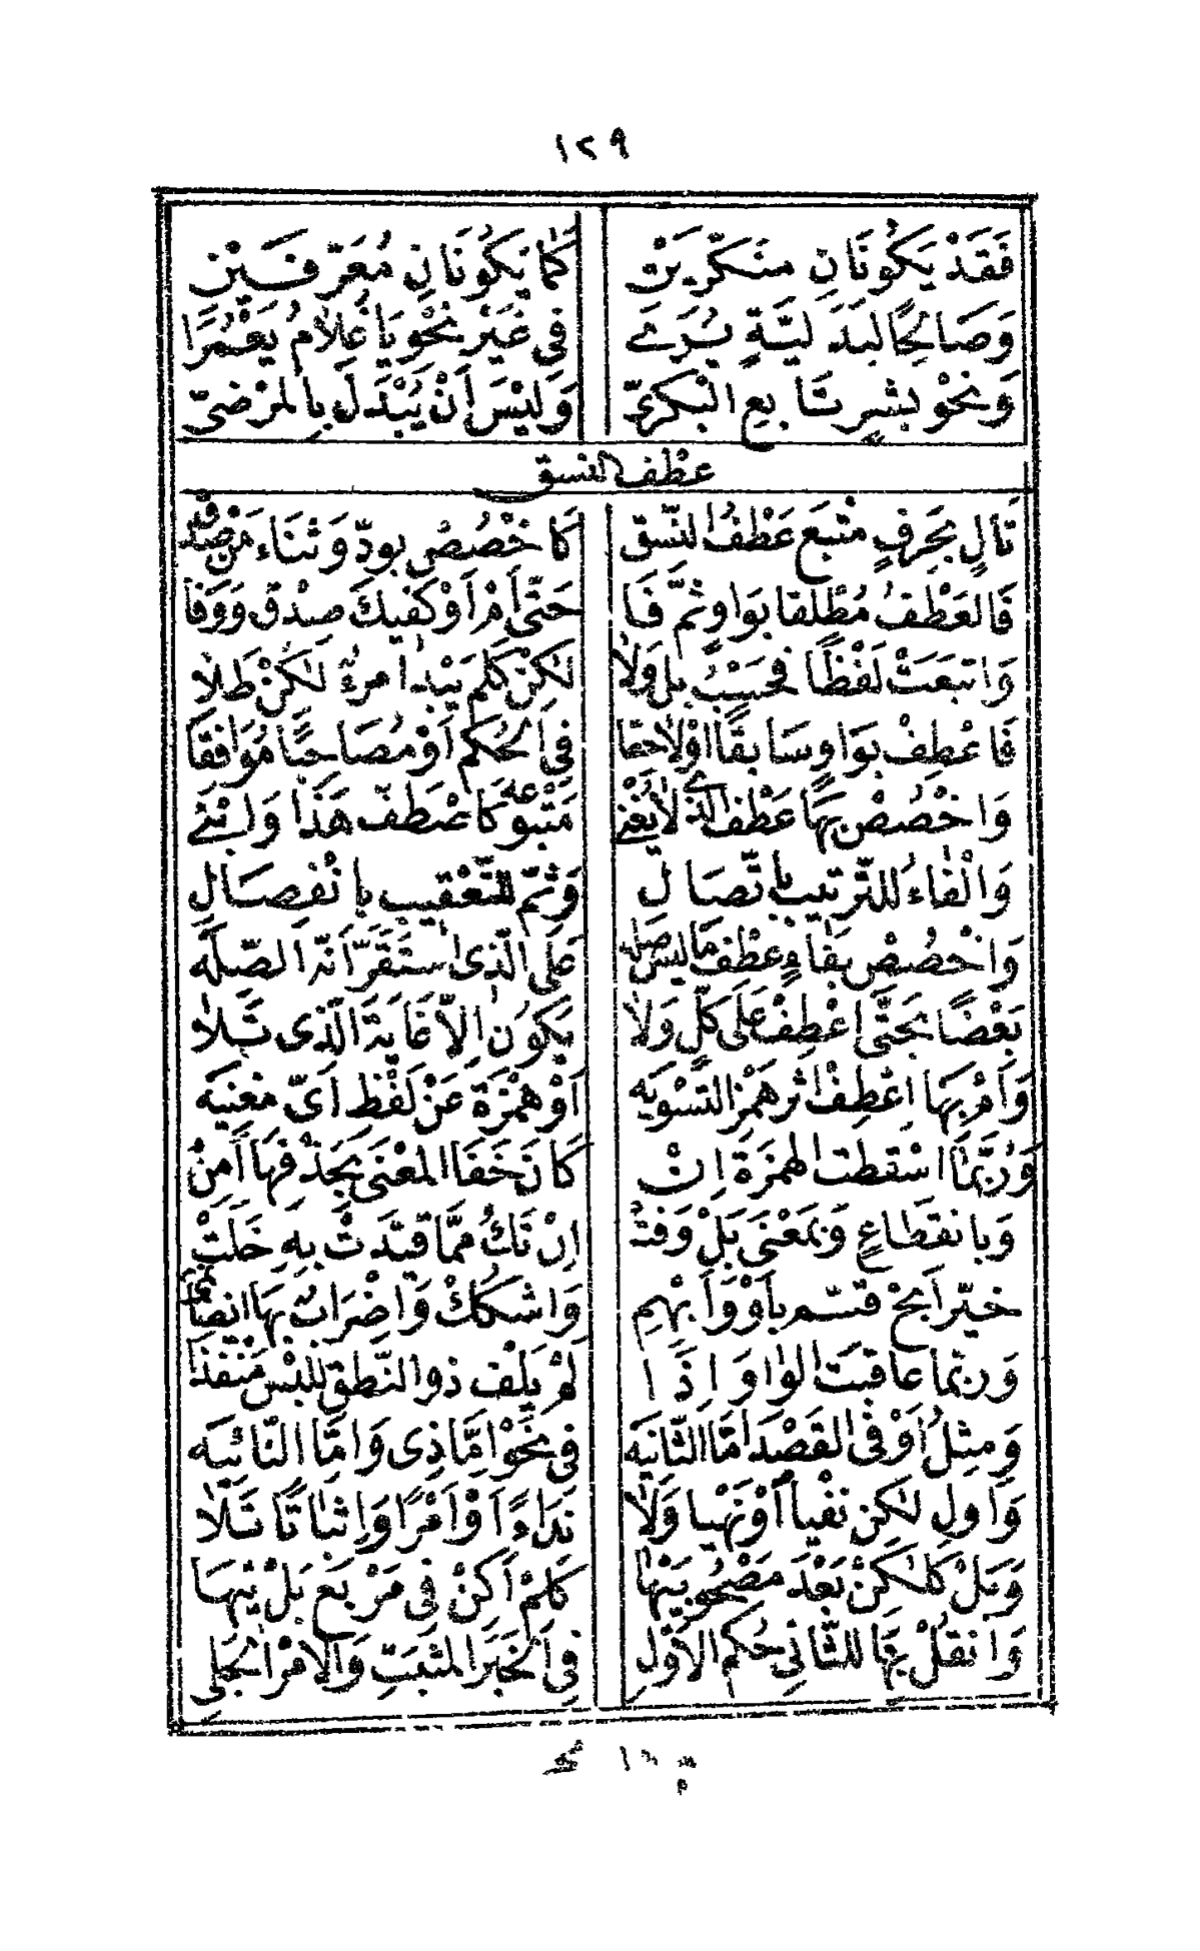 ١٢٩
فَقَدْ يَكُونَانِ مُنَكَّرَيْنِ كَمَا يَكُونَانِ مُعَرَّفَيْنِ
وَصَالِحًا لِبَدَلِيَّةٍ يُرَى فِي غَيْرِ نَحْوِ يَا غُلَامُ يَعْمُرَا
وَنَحْوِ بِشْرٍ تَابِعِ الْبَكْرِيِّ وَلَيْسَ أَنْ يُبْدَلَ بِالْمَرْضِيِّ
عطف النسق
تَالٍ بِحَرْفٍ مُتْبِعٍ عَطْفُ النَّسَقْ كَاخْصُصْ بِوُدٍّ وَثَنَاءٍ مَنْ صَدَقْ
فَالعَطْفُ مُطْلَقًا بِوَاوٍ ثُمَّ فَا حَتَّى أَمْ أَوْ كَفِيكَ صِدْقٌ وَوَفَا
وَاتْبَعَتْ لَفْظًا فَحَسْبُ بَلْ وَلَا لَكِنْ كَلَمْ يَبْدُ امْرُؤٌ لَكِنْ طَلَا
فَاعْطِفْ بِوَاوٍ سَابِقًا اَوْ لَاحِقَا فِي الْحُكْمِ أَوْ مُصَاحِبًا مُوَافِقَا
وَاخْصُصْ بِهَا عَطْفَ الَّذِي لَا يُغْنِي مَتْبُوعُهُ كَاصْطَفَّ هَذَا وَابْنِي
وَالْفَاءُ لِلتَّرْتِيبِ بِاتِّصَالِ وَثُمَّ لِلتَّعْقِيبِ بِانْفِصَالِ
وَاخْصُصْ بِفَاءٍ عَطْفَ مَا لَيْسَ صِلَهْ عَلَى الَّذِي اسْتَقَرَّ أَنَّهُ الصِّلَهْ
بَعْضًا بِحَتَّى اعْطِفْ عَلَى كُلٍّ وَلَا يَكُونُ إِلَّا غَايَةَ الَّذِي تَلَا
وَأَمْ بِهَا اعْطِفْ اثْرَ هَمْزِ التَّسْوِيَهْ أَوْ هَمْزَةٍ عَنْ لَفْظِ أَيٍّ مُغْنِيَهْ
وَرُبَّمَا اسْقِطَتِ الْهَمْزَةُ اِنْ كَانَ خَفَا الْمَعْنَى بِحَذْفِهَا أُمِنْ
وَبِانْقِطَاعٍ وَبِمَعْنَى بَلْ وَفَتْ اِنْ تَكُ مِمَّا قُيِّدَتْ بِهِ خَلَتْ
خَيِّرْ أَبِحْ قَسِّمْ بِأَوْ وَأَبْهِمِ وَاشْكُكْ وَاِضْرَابٌ بِهَا ايْضًا نُمِي
وَرُبَّمَا عَاقَبَتِ الْوَاوَ اِذَا لَمْ يُلْفِ ذُو النُّطْقِ لِلَبْسٍ مَنْفَذَا
وَمِثْلُ أَوْ فِي الْقَصْدِ اِمَّا الثَّانِيَهْ فِي نَحْوِ اِمَّا ذِي وَاِمَّا النَّائِيَهْ
وَأَوْلِ لَكِنْ نَفْيًا أَوْ نَهْيًا وَلَا نِدَاءً اَوْ أَمْرًا وَاِثْبَاتًا تَلَا
وَبَلْ كَلَكِنْ بَعْدَ مَصْحُوبَيْهَا كَلَمْ أَكُنْ فِي مَرْبَعٍ بَلْ تَيْهَا
وَانْقُلْ بِهَا لِلثَّانِي حُكْمَ الْأَوَّلِ فِي الْخَبَرِ الْمُثْبَتِ وَالْأَمْرِ الْجَلِي